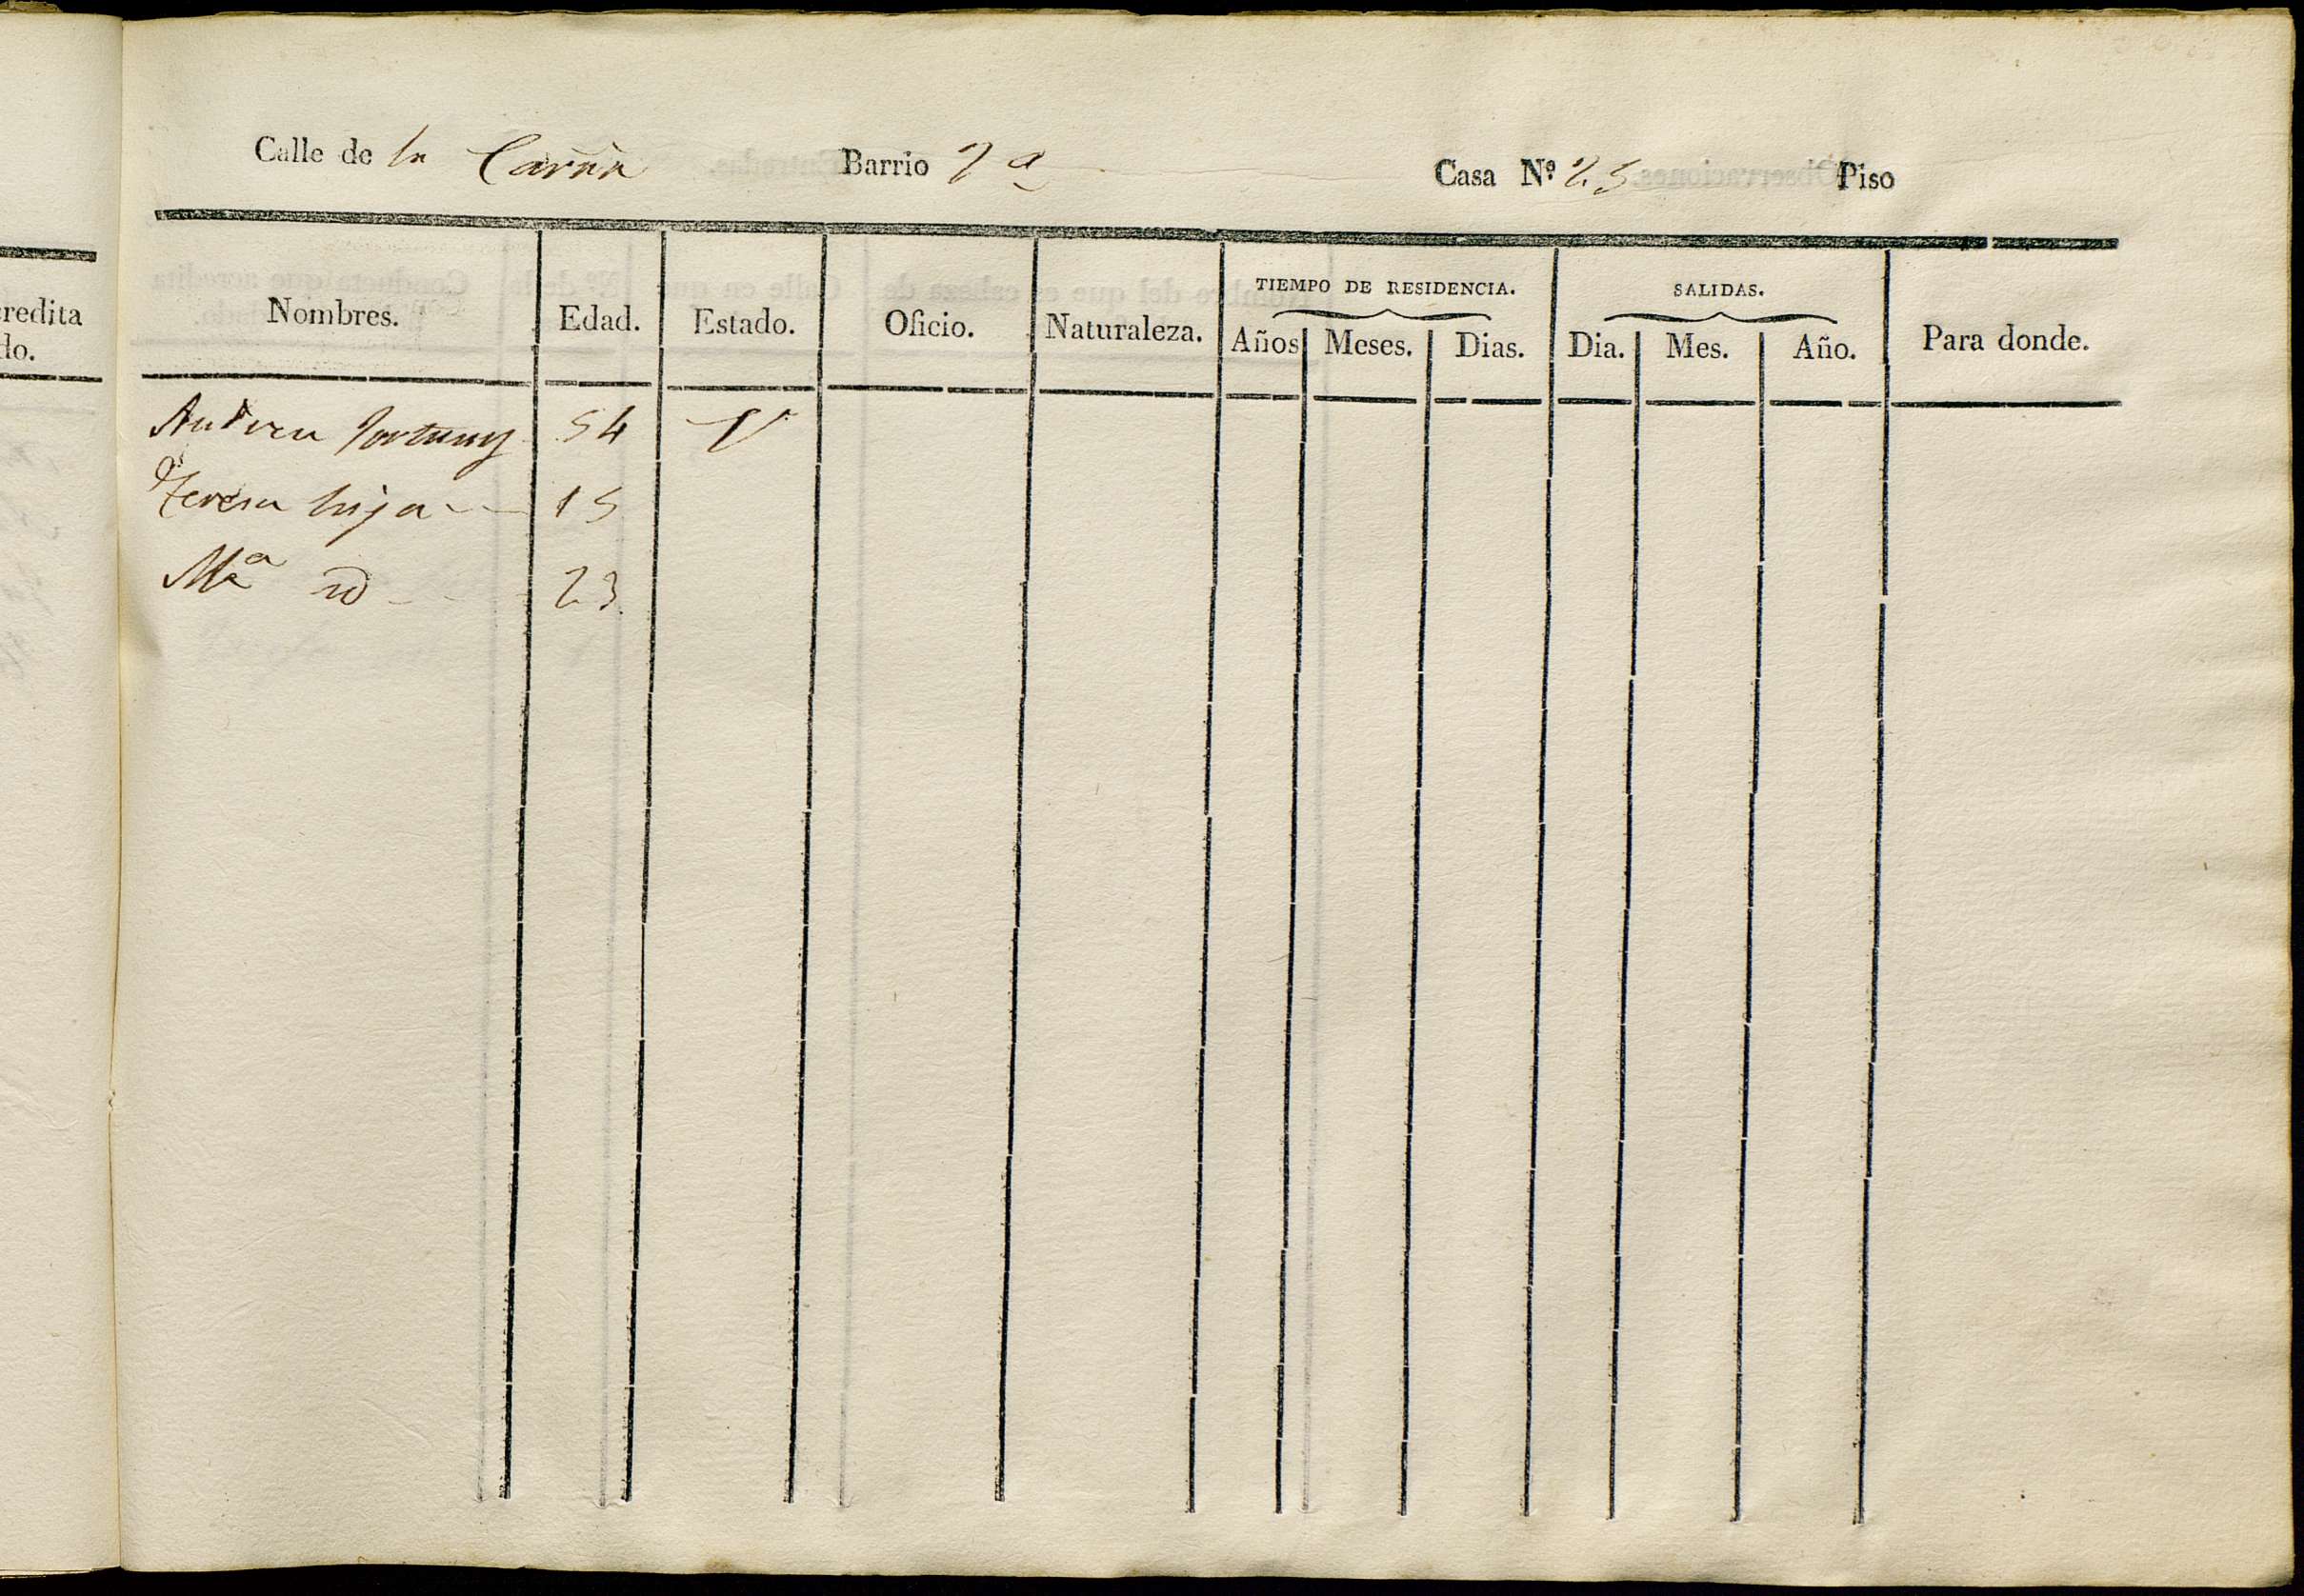 Calle de la Barrio 7ª Casa Nº 25 Piso
redita
do.
TIEMPO DE RESIDENCIA. SALIDAS.
Nombres. Edad. Estado. Oficio. Naturaleza. Años Meses. Dias. Dia. Mes. Año. Para donde.
Andreu Fortuny 54 V
Teresa hija 15
Mª id 23